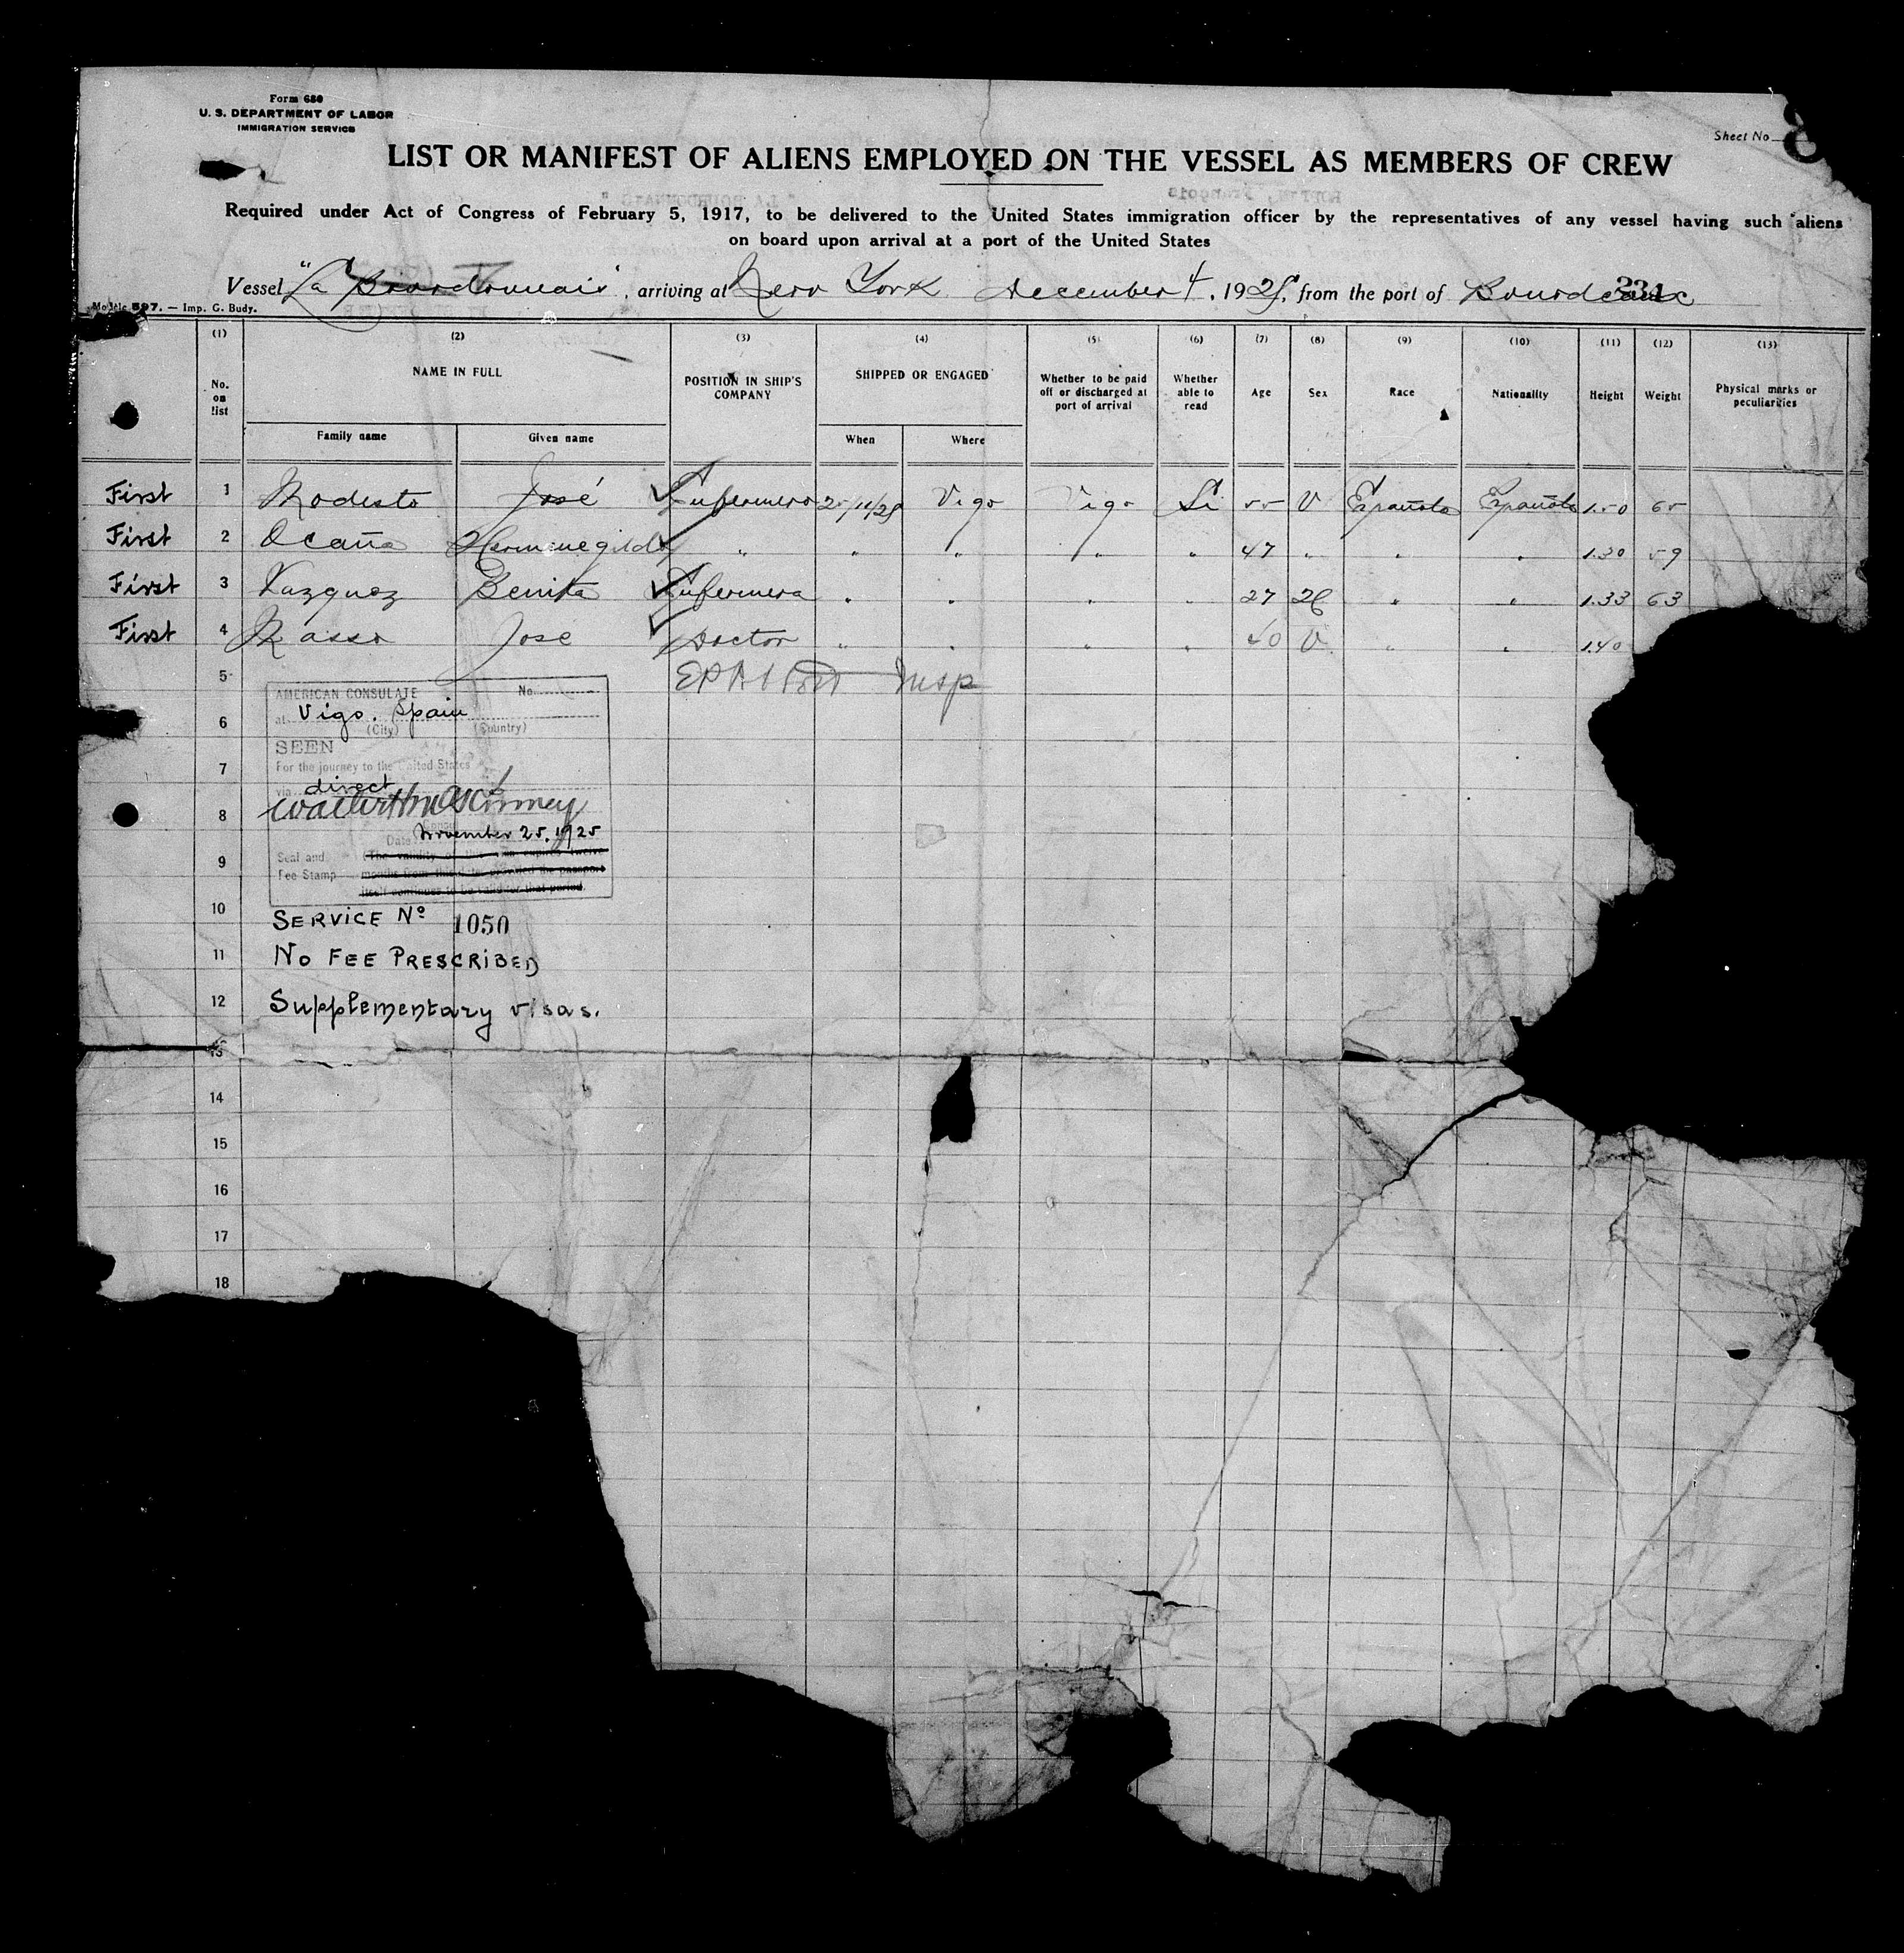 Form 680
U. S. DEPARTMENT OF LABOR
IMMIGRATION SERVICE
Sheet No. 8
LIST OR MANIFEST OF ALIENS EMPLOYED ON THE VESSEL AS MEMBERS OF CREW
Required under Act of Congress of February 5, 1917, to be delivered to the United States immigration officer by the representatives of any vessel having such aliens
on board upon arrival at a port of the United States
Vessel "La Bourdonnais", arriving at New York December 4, 1925, from the port of Bourdeaux
231
Modèle 597. — Imp. G. Budy.
(1) (2) (3) (4) (5) (6) (7) (8) (9) (10) (11) (12) (13)
No. on list NAME IN FULL POSITION IN SHIP'S COMPANY SHIPPED OR ENGAGED Whether to be paid off or discharged at port of arrival Whether able to read Age Sex Race Nationality Height Weight Physical marks or peculiarities
Family name Given name When Where
First 1 Modesto José Enfermero 25/11/25 Vigo Vigo Si 55 V Española Española 1.50 65
First 2 Ocaña Hermenegildo " " " " " 47 " " " 1.30 59
First 3 Vazquez Benita Enfermera " " " " 27 H " " 1.33 63
First 4 Masso José Doctor " " " " 40 V " " 1.40
5
AMERICAN CONSULATE No.
at Vigo, Spain
(City) (Country)
6
SEEN
7
For the journey to the United States
via direct
8
November 25, 1925
Date
9
Seal and Fee Stamp
(The validity of this visa expires twelve
months from this date provided the passport
itself continues to be valid for that period.
10
SERVICE No 1050
11
NO FEE PRESCRIBED
12
Supplementary visas.
13
14
15
16
17
18